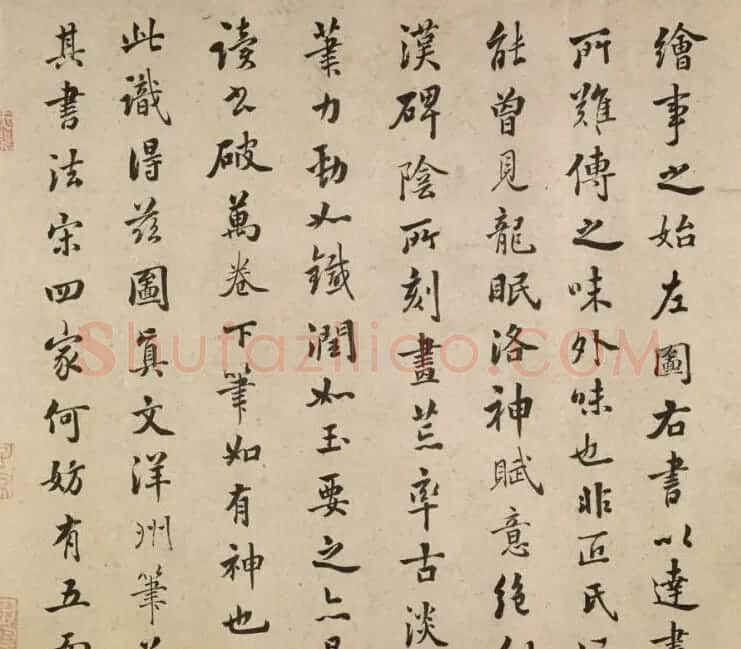 繪事之始左圖右書以達書
所難傳之味外味也非匠氏
能曾見龍眠洛神賦意絕
漢碑陰所刻畫荒率古淡
筆力勁如鐵潤如玉要之亦
讀書破萬卷下筆如有神也
此識得茲圖真文洋州筆
其書法宋四家何妨有五
Shufaziliao.COM